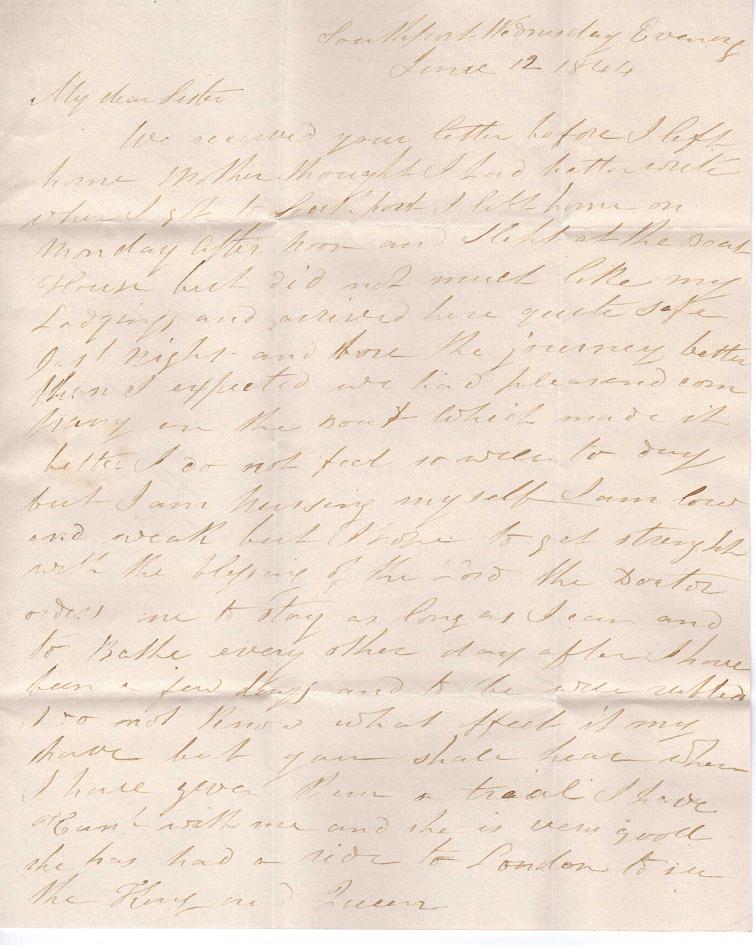 Southport Wednesday Evening
June 12 1844
My dear Sister
We received your letter before I left
home Mother thought I had better write
when I got to Southport I left home on
Monday after noon and Slept at the Boat
House but did not much like my
Lodgings and arrived here quite safe
Last Night and bore the journey better
than I expected we had pleasand com
pany on the Boat which made it
better I do not feel so well to day
but I am nursing myself I am low
and weak but I hope to get strenght
with the blessing of the Lord the Doctor
orders me to stay as long as I can and
to Bathe every other day after I have
been a few days and to be well rubbed
I do not know what effect it my
have but you shall hear when
I have given them a trial I have
with me and she is very good
she has had a ride to London to see
the King and Queen